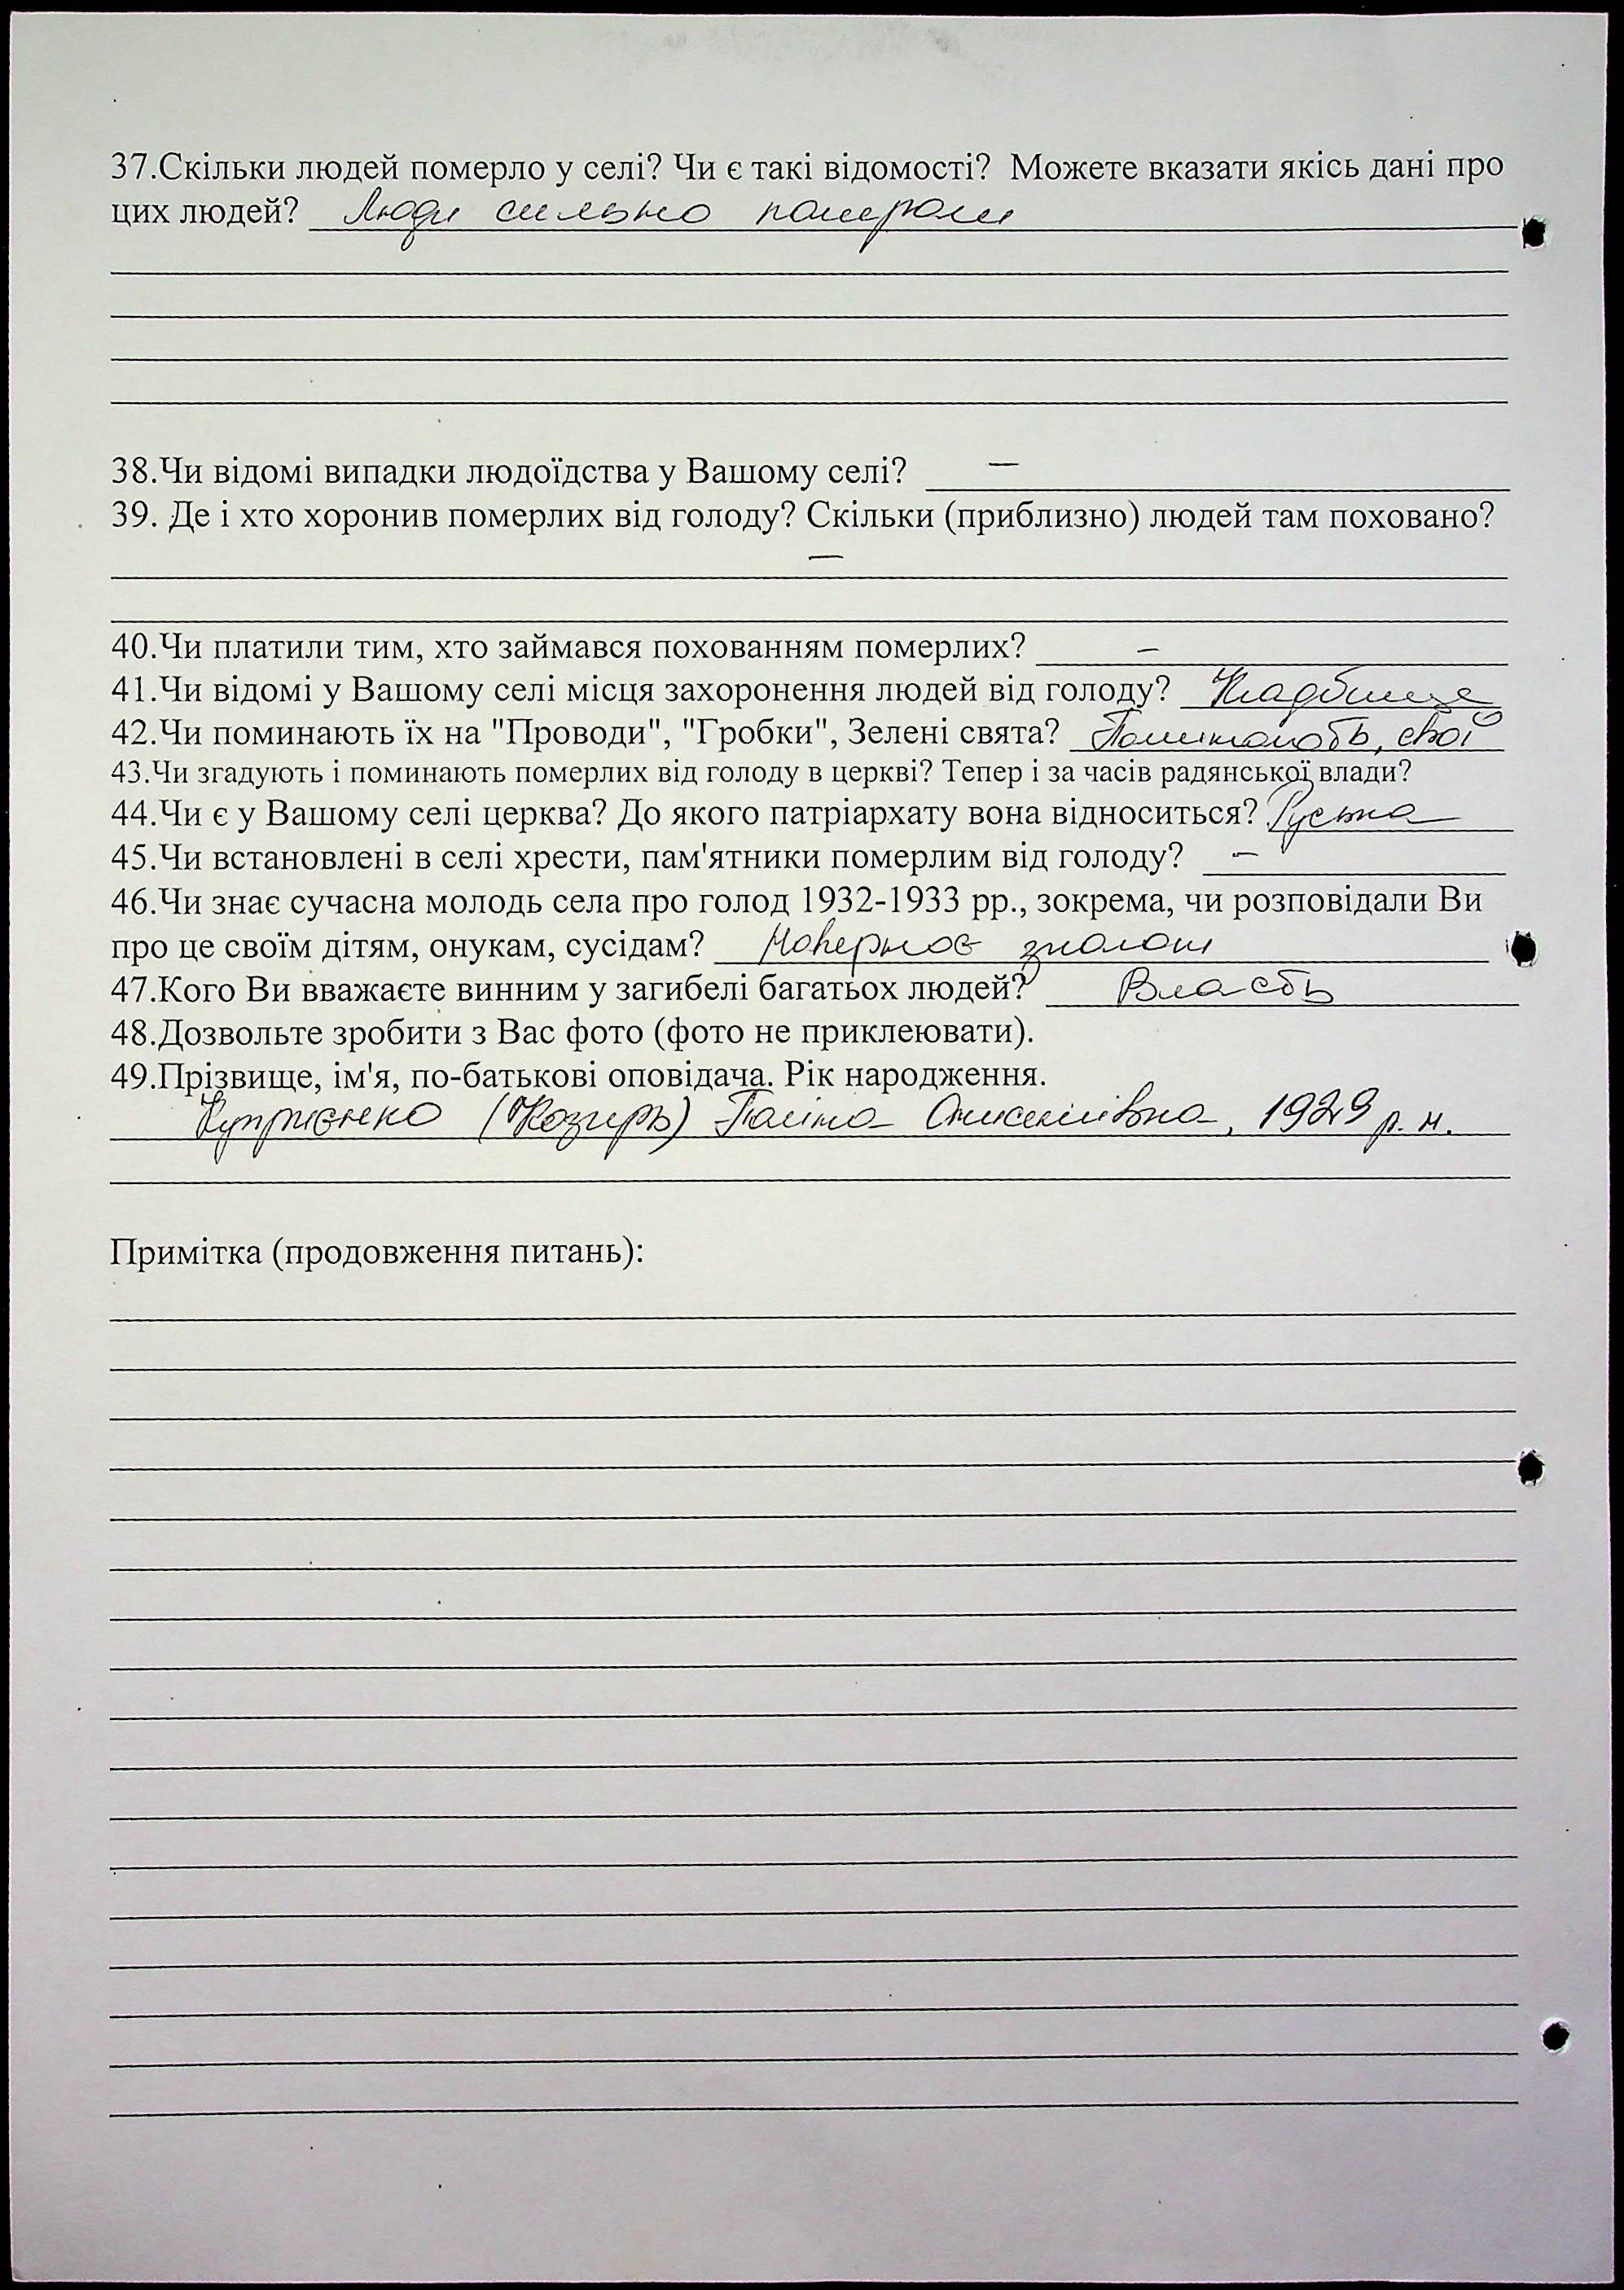 37.Скільки людей померло у селі? Чи є такі відомості? Можете вказати якісь дані про
цих людей? Люди сильно помирали
38.Чи відомі випадки людоїдства у Вашому селі? –
39. Де і хто хоронив померлих від голоду? Скільки (приблизно) людей там поховано?
–
40.Чи платили тим, хто займався похованням померлих? –
41.Чи відомі у Вашому селі місця захоронення людей від голоду? Кладбище
42.Чи поминають їх на "Проводи", "Гробки", Зелені свята? свої
43.Чи згадують і поминають померлих від голоду в церкві? Тепер і за часів радянської влади?
44.Чи є у Вашому селі церква? До якого патріархату вона відноситься? Руська
45.Чи встановлені в селі хрести, пам'ятники померлим від голоду? –
46.Чи знає сучасна молодь села про голод 1932-1933 рр., зокрема, чи розповідали Ви
про це своїм дітям, онукам, сусідам? Наверноє
47.Кого Ви вважаєте винним у загибелі багатьох людей? Власть
48.Дозвольте зробити з Вас фото (фото не приклеювати).
49.Прізвище, ім'я, по-батькові оповідача. Рік народження.
Купрієнко (Козирь) Онисимівна, 1929 р. н.
Примітка (продовження питань):